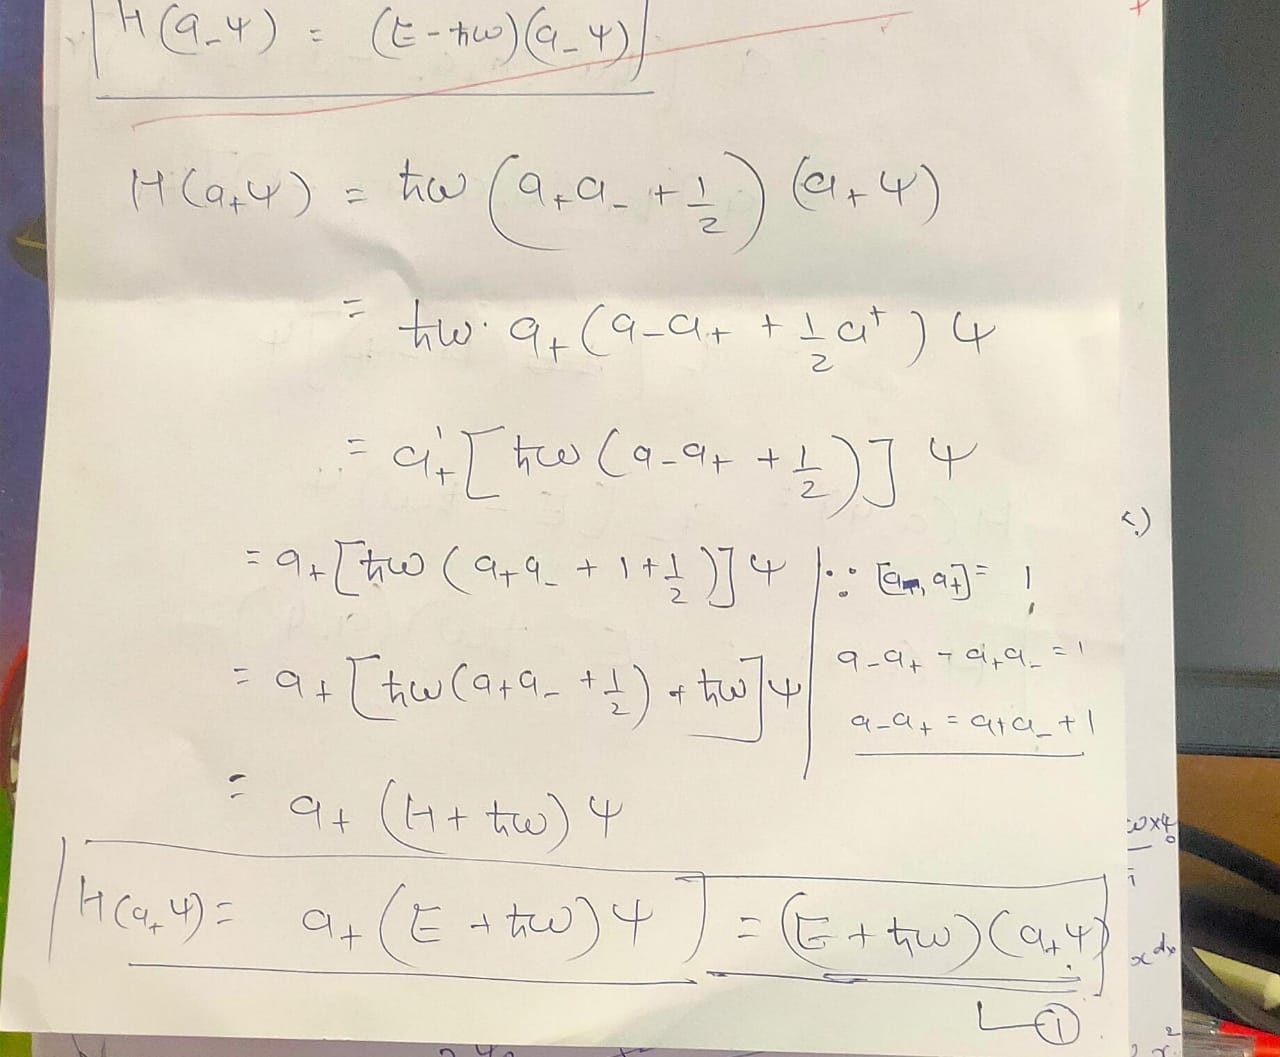 H(a₋ψ) = (E - ħω)(a₋ψ)
H(a₊ψ) = ħω (a₊a₋ + 1/2) (a₊ψ)
= ħω · a₊ (a₋a₊ + 1/2 a⁺) ψ
= a₊ [ħω (a₋a₊ + 1/2)] ψ
= a₊ [ħω (a₊a₋ + 1 + 1/2)] ψ | ∵ [a₋, a₊] = 1
a₋a₊ - a₊a₋ = 1
= a₊ [ħω (a₊a₋ + 1/2) + ħω] ψ
a₋a₊ = a₊a₋ + 1
= a₊ (H + ħω) ψ
H(a₊ψ) = a₊ (E + ħω) ψ = (E + ħω)(a₊ψ)
①